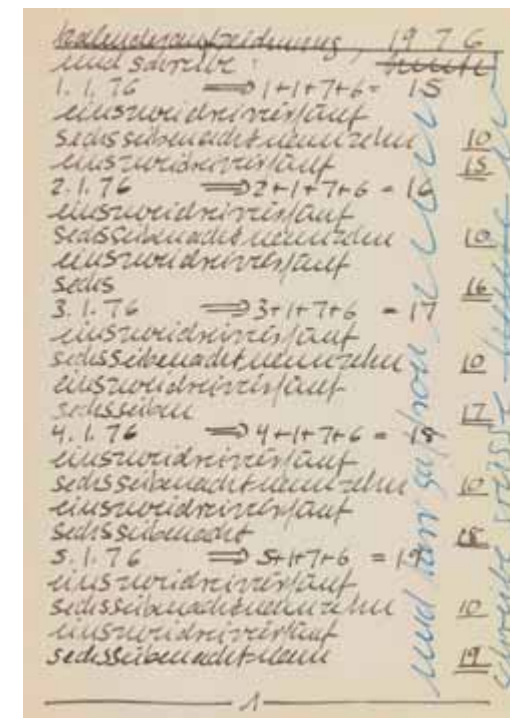 kalenderaufzeichnung, 19 7 6
und schreibe : heute
1. 1. 76 ⟹ 1+1+7+6 = 15
einszweidreivierfünf
sechssiebenachtneunzehn 10
einszweidreivierfünf 15
2. 1. 76 ⟹ 2+1+7+6 = 16
einszweidreivierfünf
sechssiebenachtneunzehn 10
einszweidreivierfünf
sechs 16
3. 1. 76 ⟹ 3+1+7+6 = 17
einszweidreivierfünf
sechssiebenachtneunzehn 10
einszweidreivierfünf
sechssieben 17
4. 1. 76 ⟹ 4+1+7+6 = 18
einszweidreivierfünf
sechssiebenachtneunzehn 10
einszweidreivierfünf
sechssiebenacht 18
5. 1. 76 ⟹ 5+1+7+6 = 19
einszweidreivierfünf
sechssiebenachtneunzehn 10
einszweidreivierfünf
sechssiebenachtneun 19
1
und
schreibe heute